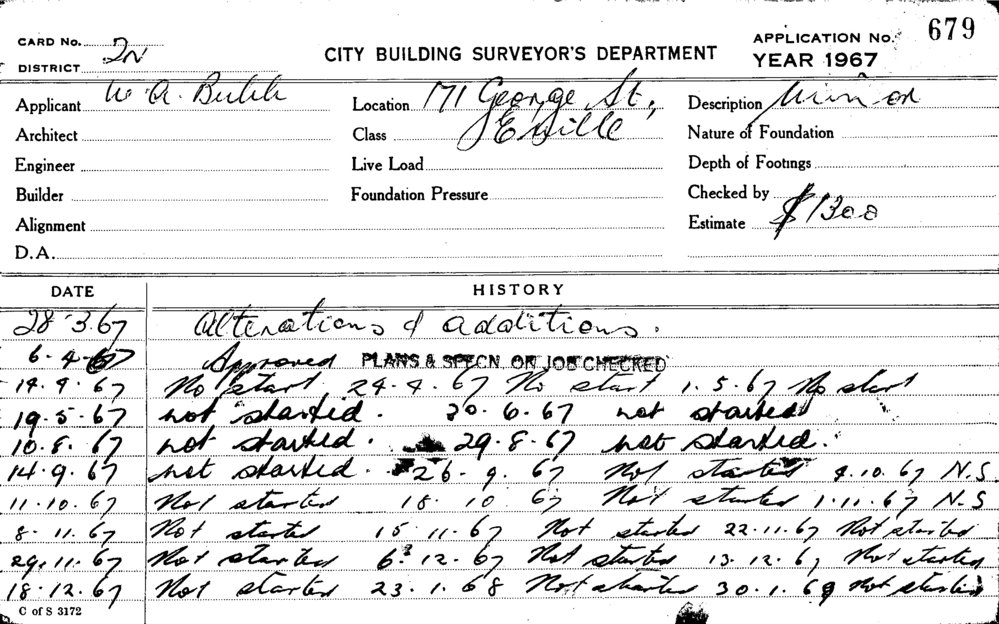 CARD No. 2N
DISTRICT
CITY BUILDING SURVEYOR'S DEPARTMENT
APPLICATION No. 679
YEAR 1967
Applicant W. A.
Location 171 George St,
Description Minor
Architect
Class E'ville
Nature of Foundation
Engineer
Live Load
Depth of Footings
Builder
Foundation Pressure
Checked by
Alignment
Estimate $1300
D.A.
DATE HISTORY
28.3.67 Alterations & additions.
6.4.67 Approved PLANS & SPECN. ON JOB CHECKED
14.4.67 No start 24.4.67 No start 1.5.67 No start
19.5.67 not started. 20.6.67 not started
10.8.67 not started. 29.8.67 not started.
14.9.67 not started. 26.9.67 Not started 4.10.67 N.S.
11.10.67 Not started 18.10.67 Not started 1.11.67 N.S
8.11.67 Not started 15.11.67 Not started 22.11.67 Not started
29.11.67 Not started 6.12.67 Not started 13.12.67 Not started
18.12.67 Not started 23.1.68 Not started 30.1.68 Not started
C of S 3172